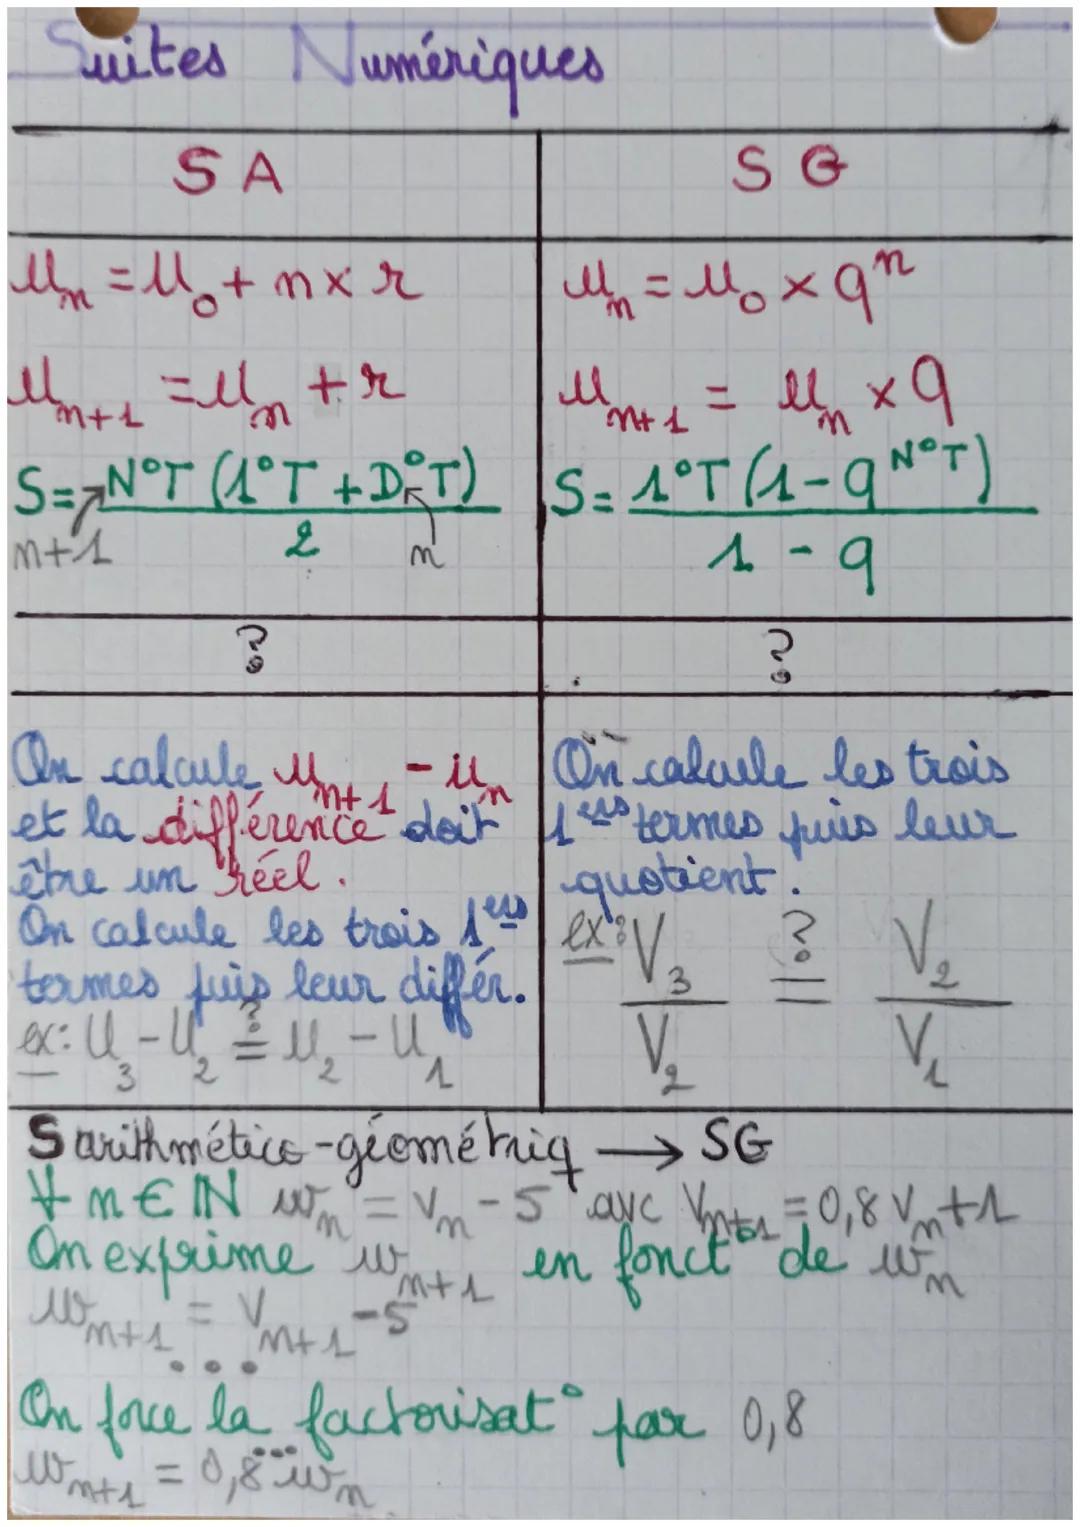 Suites Numériques
SA
SG
Un = U0 + n × r
Un = U0 × q^n
Un+1 = Un + r
Un+1 = Un × q
S = N°T (1°T + D°T) / 2
n+1
n
S = 1°T (1 - q^N°T) / 1 - q
?
?
On calcule Un+1 - Un
et la différence doit
être un réel.
On calcule les trois 1ers
termes puis leur différ.
ex: U3 - U2 ≟ U2 - U1
On calcule les trois
1ers termes puis leur
quotient.
ex: V3/V2 ≟ V2/V1
S arithmético-géométriq → SG
∀ n ∈ ℕ wn = Vn - 5 avc Vn+1 = 0,8 Vn + 1
On exprime wn+1 en fonct° de wn
wn+1 = Vn+1 - 5
...
On force la factorisat° par 0,8
...
wn+1 = 0,8 wn